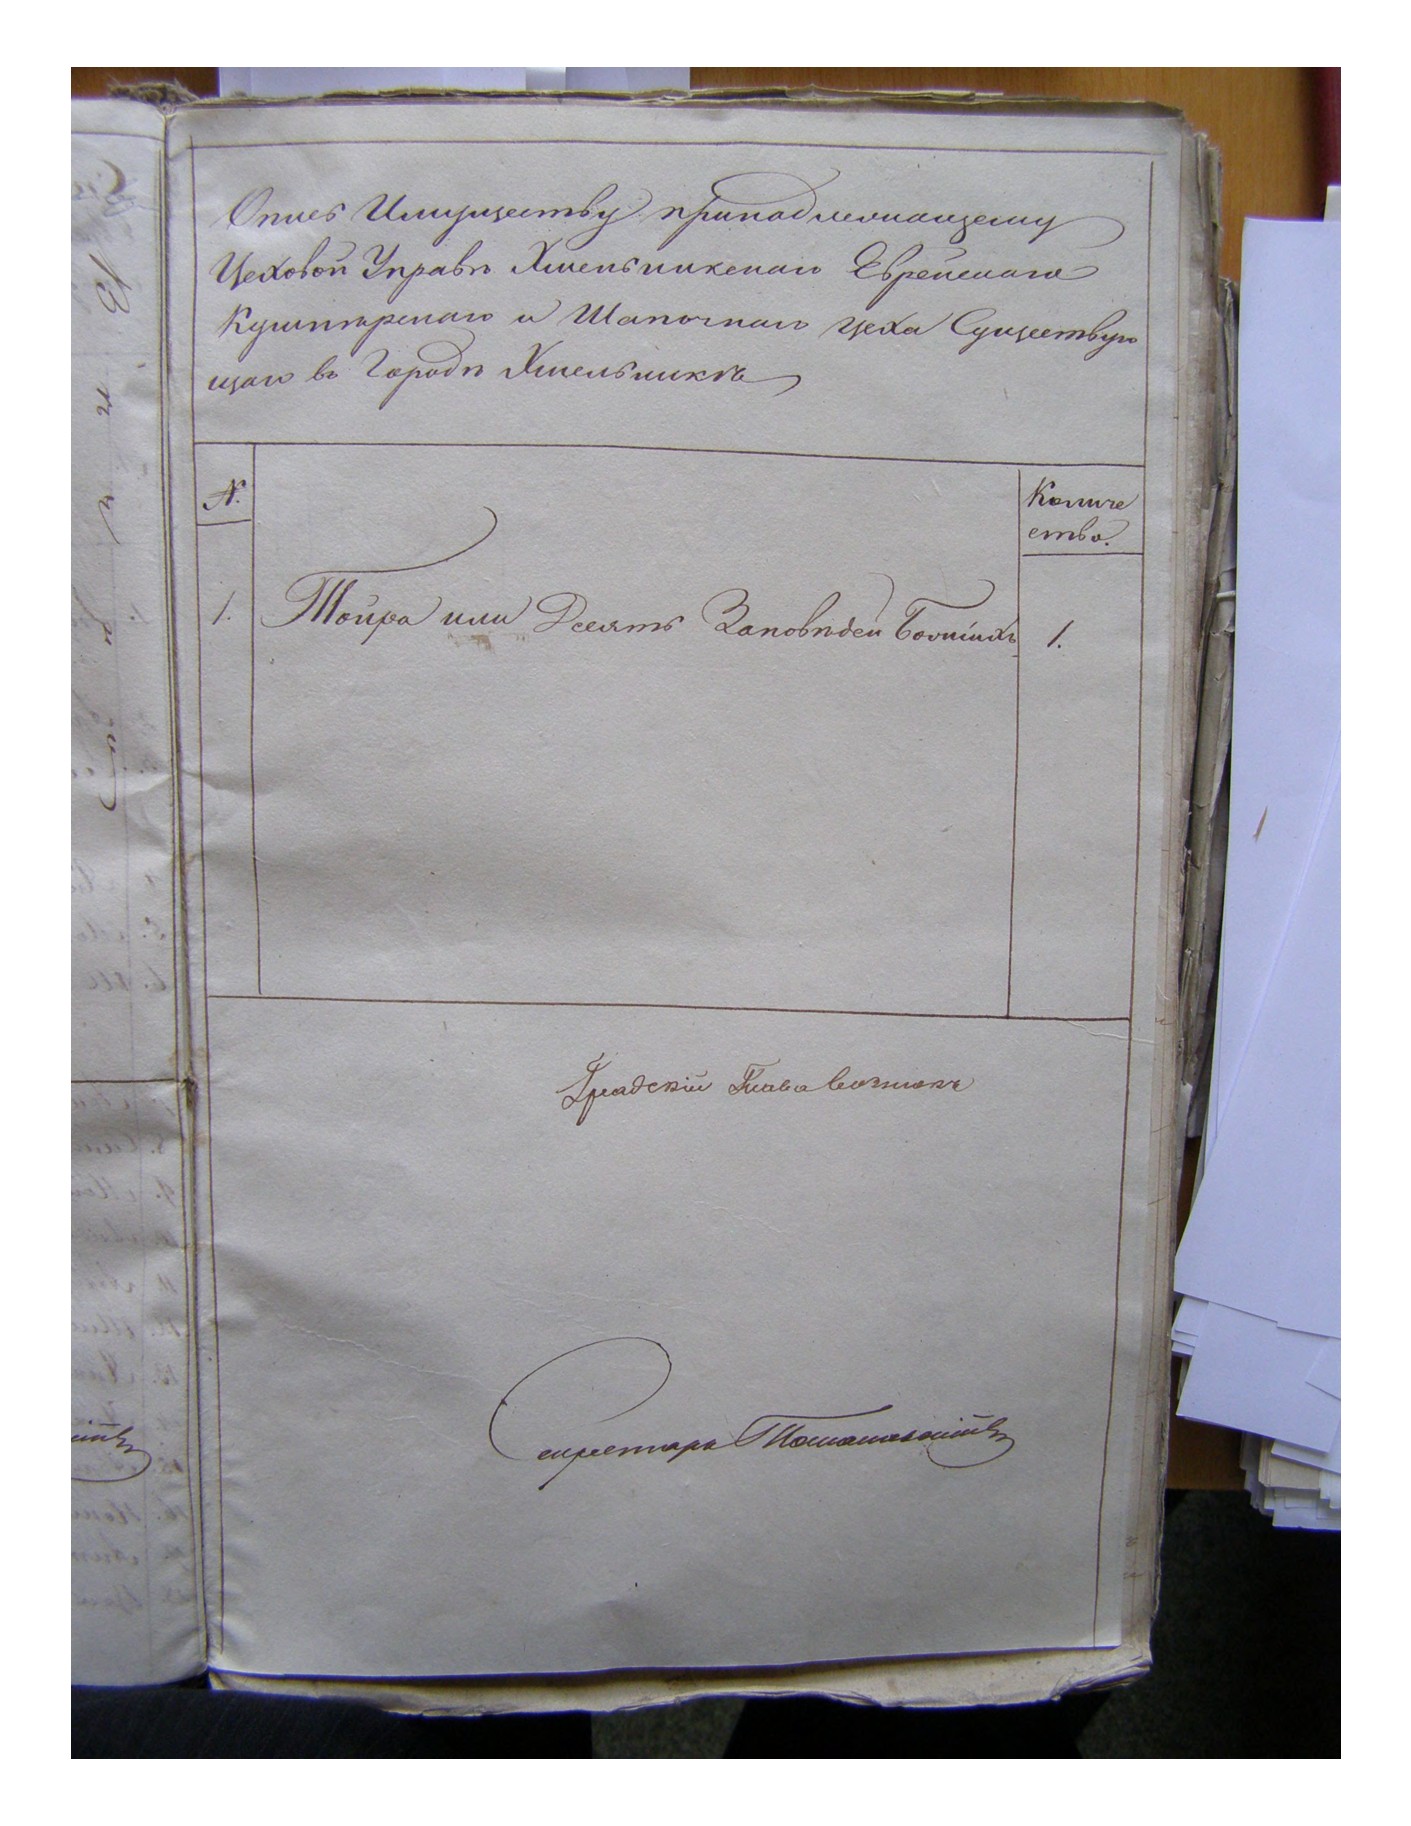 Опись Имуществу принадлежащему
Цеховой Управѣ Хмельникскаго Еврейскаго
Кушнѣрскаго и Шапочнаго цеха Существую
щаго въ Городѣ Хмельникѣ
N.
Количе
ство.
1. Тойра или Десять Заповѣдей Божіихъ 1.
Градскій Глава
Секретарь